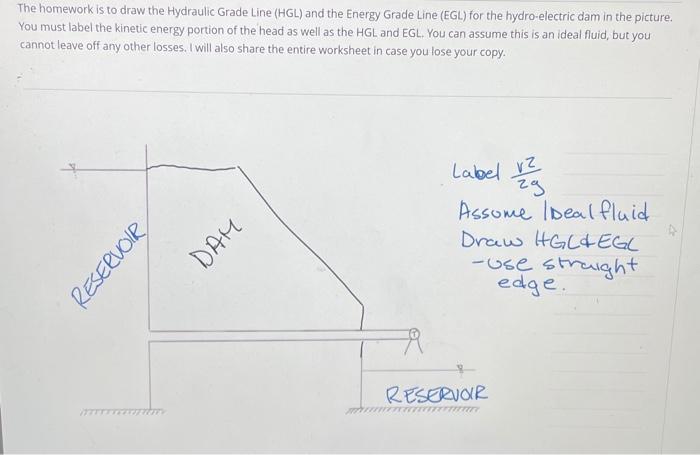 The homework is to draw the Hydraulic Grade Line (HGL) and the Energy Grade Line (EGL) for the hydro-electric dam in the picture.
You must label the kinetic energy portion of the head as well as the HGL and EGL. You can assume this is an ideal fluid, but you
cannot leave off any other losses. I will also share the entire worksheet in case you lose your copy.
Label v²/2g
Assume Ideal fluid
Draw HGL & EGL
-use straight
edge.
RESERVOIR
DAM
T
RESERVOIR